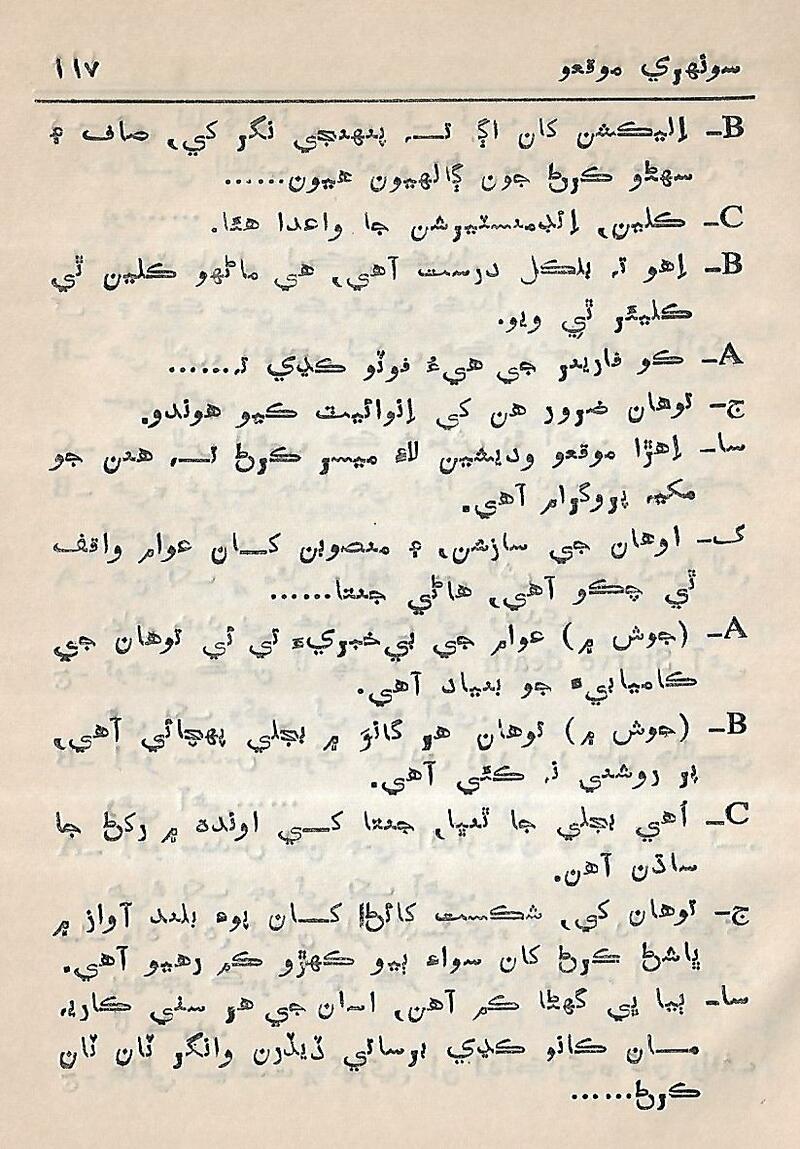 سونهري موقعو ١١٧
B– اِليڪشن کان اڳ تہ پنهنجي نگر کي، صاف ۽
سهڻو ڪرڻ جون ڳالهيون هيون......
C– ڪلين، اِئڊمنسٽيرشن جا واعدا هئا.
B– اِهو تہ بلڪل درست آهي، هي ماڻهو ڪلين ٿي
ڪليئر ٿي ويو.
A– ڪو فارينر جي هيءُ فوٽو ڪڍي تہ.......
ج– توهان ضرور هن کي اِنوائيٽ ڪيو هوندو.
سا– اِهڙا موقعو وديشين لاءِ ميسر ڪرڻ تہ هنن جو
مکيہ پروگرام آهي.
ک– اوهان جي سازشن، ۽ منصوبن کان عوام واقف
ٿي چڪو آهي، هاڻي جنتا......
A– (جوش ۾) عوام جي بي خبريءَ تي ئي توهان جي
ڪاميابيءَ جو بنياد آهي.
B– (جوش ۾) توهان هر گانوَ ۾ بجلي پهچائي آهي،
پر روشني نہ ڪئي آهي.
C– اُهي بجلي جا ٿنڀا، جنتا کي اونده ۾ رکڻ جا
ساڌن آهن.
ج– توهان کي، شڪست کائڻ کان پوءِ بلند آواز ۾
ڀاشڻ ڪرڻ کان سواءِ ٻيو ڪهڙو ڪم رهيو آهي.
سا– ٻيا ڀي گهڻا ڪم آهن، اسان جي هر سٺي ڪاريہ
مان کانو ڪڍي برساتي ڏيڏرن وانگر ٽان ٽان
ڪرڻ......